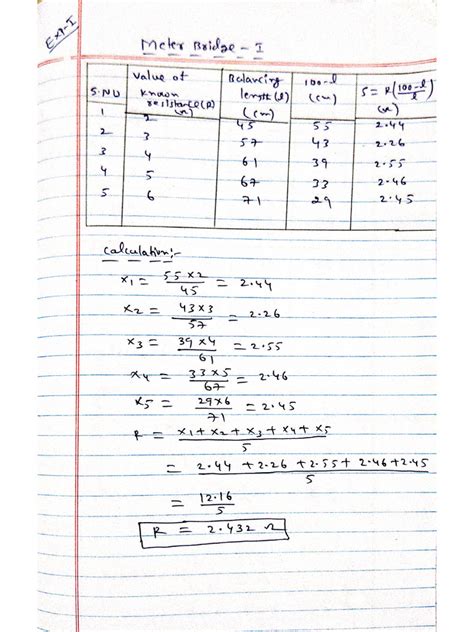 Exp-I
Meter Bridge - I
S.NO | Value of known resistance(R) (Ω) | Balancing length (l) (cm) | 100-l (cm) | S = R(100-l/l) (Ω)
1 | 2 | 45 | 55 | 2.44
2 | 3 | 57 | 43 | 2.26
3 | 4 | 61 | 39 | 2.55
4 | 5 | 67 | 33 | 2.46
5 | 6 | 71 | 29 | 2.45
Calculation:-
x1 = 55×2/45 = 2.44
x2 = 43×3/57 = 2.26
x3 = 39×4/61 = 2.55
x4 = 33×5/67 = 2.46
x5 = 29×6/71 = 2.45
R = x1+x2+x3+x4+x5/5
= 2.44+2.26+2.55+2.46+2.45/5
= 12.16/5
R = 2.432 Ω